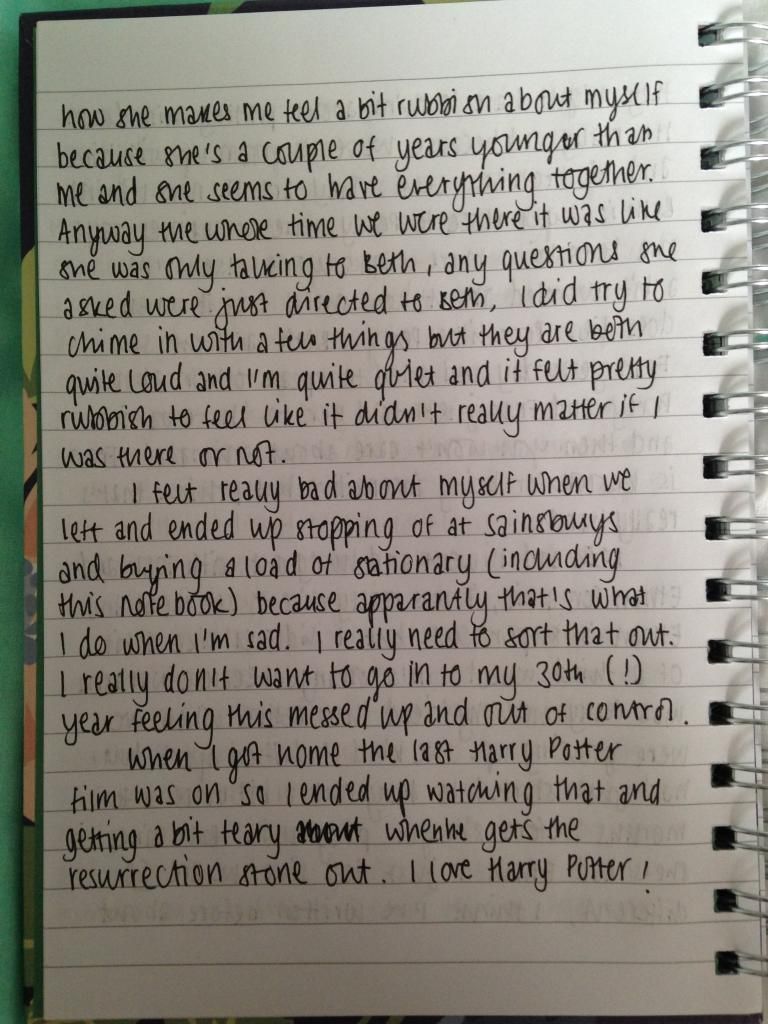 how she makes me feel a bit rubbish about myself
because she's a couple of years younger than
me and she seems to have everything together.
Anyway the whole time we were there it was like
she was only talking to Beth, any questions she
asked were just directed to Beth, I did try to
chime in with a few things but they are both
quite loud and I'm quite quiet and it felt pretty
rubbish to feel like it didn't really matter if I
was there or not.
I felt really bad about myself when we
left and ended up stopping of at Sainsburys
and buying a load of stationary (including
this notebook) because apparantly that's what
I do when I'm sad. I really need to sort that out.
I really don't want to go in to my 30th (!)
year feeling this messed up and out of control.
When I got home the last Harry Potter
film was on so I ended up watching that and
getting a bit teary when he gets the
resurrection stone out. I love Harry Potter!